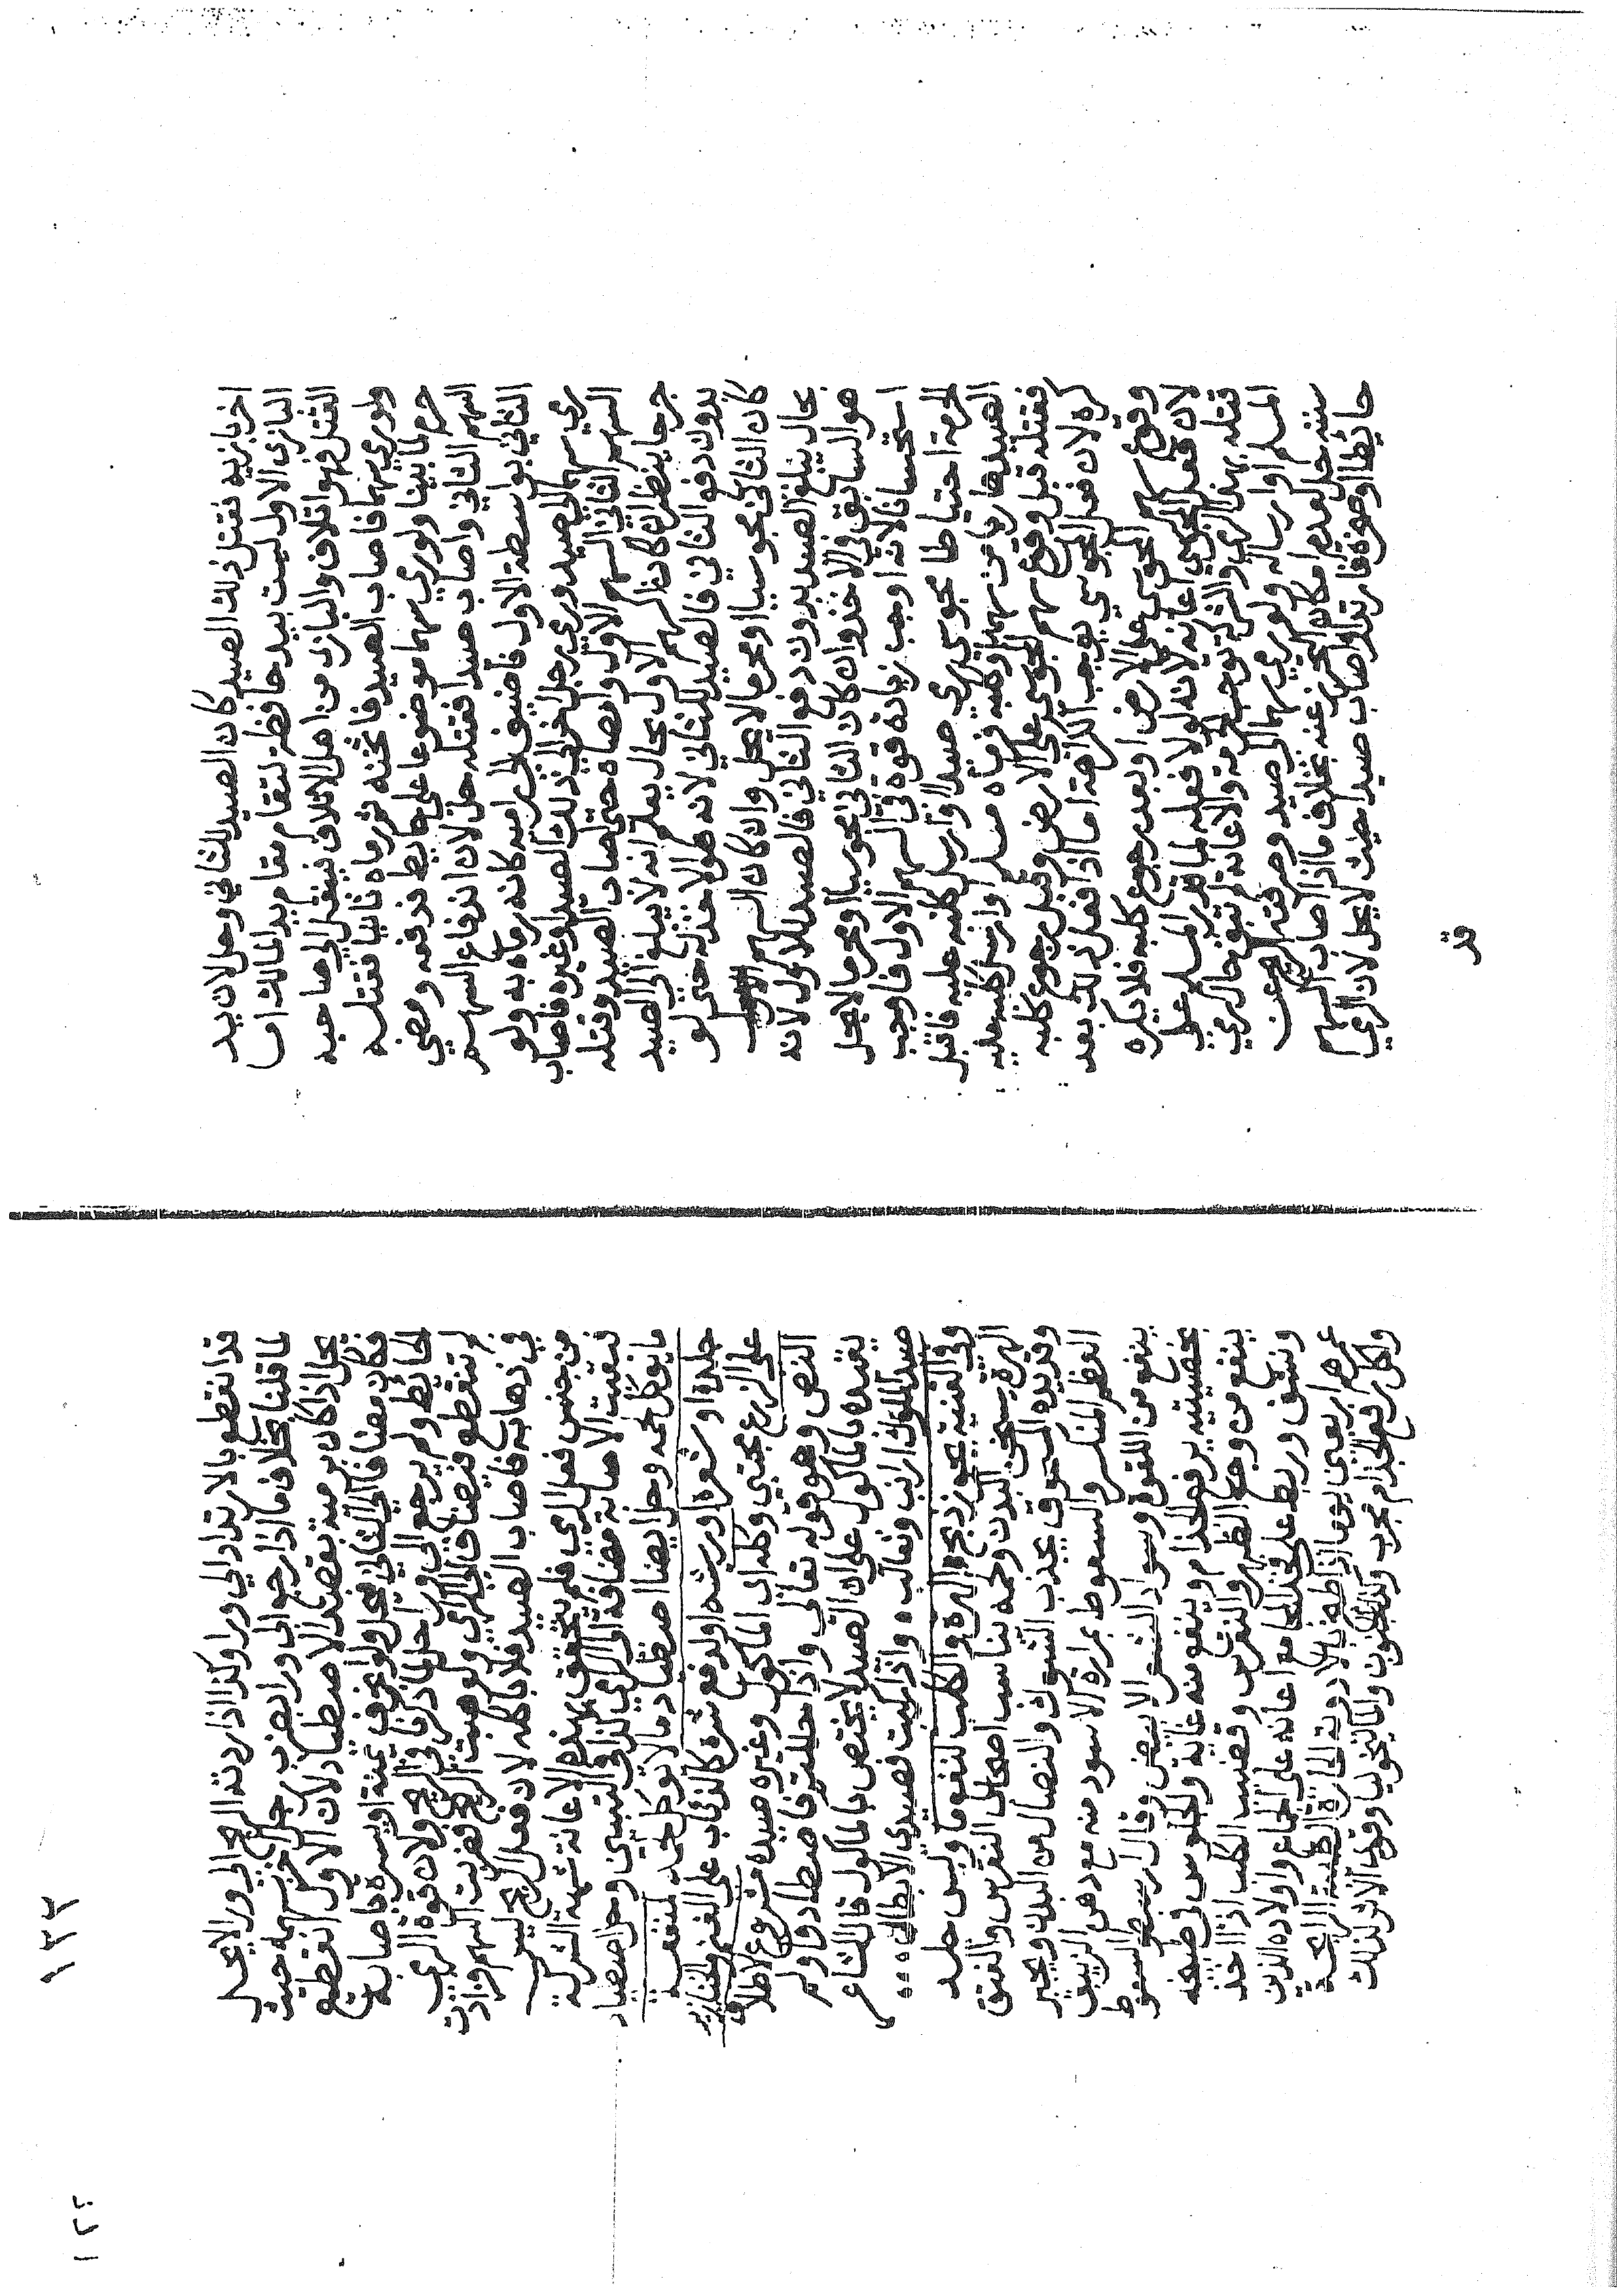 اخر بازيه فقتل ذلك الصيد كان الصيد للثاني وحل لان يد
البازي الاول ليست بيد حافظة لتقام مقام يد المالك اما
القتل فهو اتلاف والبازي من اهل الاتلاف فينقل الي صاحبه
ولو رمي سهما فاصاب الصيد فاثخنه ثم رماه ثانيا فقتله
حرم لما بينا ولو رمي سهما موضوعا علي حايط فدفعه ومضي
السهم الثاني واصاب صيدا فقتله حل لان اندفاع السهم
الثاني بواسطة الاول فاضيف الي راميه كانه رماه به ولو
رمي سهما الي صيد ورمي رجل اخر الي ذلك الصيد او غيره فاصاب
السهم الثاني السهم الاول وامضاه حتي اصاب الصيد وقتله
جرحا ينظر ان كان السهم الاول بحال يعلم انه لا يبلغ الي الصيد
بدون دفع الثاني فالصيد للثاني لانه هو الاخذ له حتي لو
كان الثاني مجوسيا او محرما لا يحل وان كان السهم الاول
بحال يبلغ الصيد بدون دفع الثاني فالصيد للاول لانه
هو السابق في الاخذ وان كان الثاني مجوسيا او محرما لا يحل
استحسانا لانه اوجب زيادة قوة في السهم الاول فاوجب
الحرمة احتياطا مجوسي رمي صيدا او ارسل كلبه عليه فاقبل
الصيد هاربا من سهمه او كلبه فرماه مسلم او ارسل كلبه عليه
فقتله قبل وقوع سهم المجوسي علي الارض وقبل رجوع كلبه
كره لان فعل المجوسي يوجب الكراهة اما اذا فعل ذلك بعد
وقوع سهم المجوسي علي الارض او بعد رجوع كلبه فلا يكره
لان فعل المجوسي اعانة لانه لولا فعله لما قدر المسلم علي
قتله بهذا الرمي والشركة توجب الحرمة والاعانة لم تبق حال رمي
المسلم او ارساله ولو رمي سهما الي صيد وحرفته الريح عن
سننه حل لعدم امكان التحرز عنه بخلاف ما اذا اصاب السهم
حايطا او صخرة فارتد واصاب صيدا حيث لا يحل لان الرمي
قد
قد انقطع بالارتداد الي ورا وكذا اذا ردته الريح الي ورا لا يحل
لما قلنا بخلاف ما اذا رجع الي ورا بضرب رجل اخر سهمه حيث
يحل اذا كان برمية بقصد الاصطياد لان الاول انقطع
فكان مضافا الي الثاني فحل ولو انحرف يمنة او يسرة باصابة
الحائط ولم يرجع الي ورا حل لما ذكرنا في الريح ولان قوة الرمي
لم تنقطع فيضاف الي الرمي ولو هبت الريح فضربت السهم وزادت
في ذهابه فاصاب الصيد فلا باس باكله لان فعل الريح ليس
من جنس فعل الرمي فلم يتحقق بهذه الاعانة شبهة الشركة
فبقيت الاصابة مضافة الي الرمي كذا في التبيين وحل اصطياد
ما يوكل لحمه وحل ايضا اصطياد ما لا يوكل لحمه لمنفعة
جلده او شعره او ريشه او لدفع شره كالذئاب علي الغنم والخنازير
علي الزرع مجتبي وكله اي الماكول وغيره صيده مشروع لاطلاق
النص وهو قوله تعالي واذا حللتم فاصطادوا ولم
يقيده بالماكول علي ان الصيد لا يختص بالماكول قال الشاعر
صيد الملوك ارانب وثعالب • واذا ركبت فصيدي الابطال
وفي القنية يجوز ذبح الهرة والكلب لنفع ما وليس جلد
الهرة يسخن البدن ولحمه يناسب اصحاب النقرس والفتق
وقديده المسحوق يجذب الشوك والنصال من البدن ويجبر
العظم المنكسر والسعوط بمرارة الاسود منه مع دهن الزيبق
ينفع من اللقوة وسواد الابيض وقال ارسطو السعوط
بخصيتيه يرفع الجذام وينفع منه غاية والجلوس في طبيخه
ينفع من وجع الظهر والنقرس وقضيب الكلب اذا اخذ
ونشف وربط علي فخذ المجامع اعانه علي الجماع واولاده الذين
عمرهم اربعين يوما اذا طبخ بالادوية الحارة الطيبة الرائحة
واكل رفع الجذام مجرب وكذا الجنون والماليخوليا وقوي الاثر لذلك
١٣٢